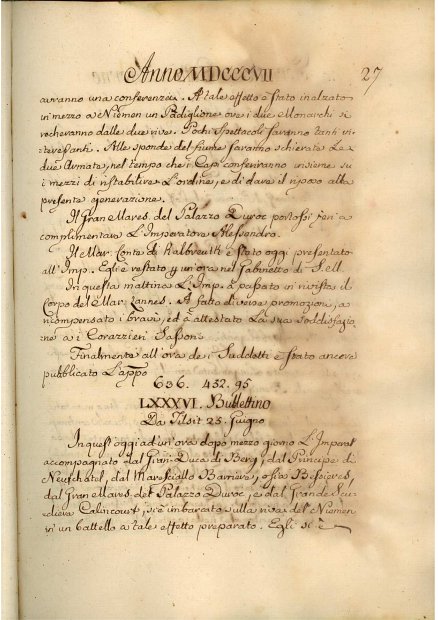 Anno MDCCCVII 27
avranno una conferenza. A tale effetto è stato inalzato
in mezzo a Niemen un Padiglione ove i due Monarchi si
recheranno dalle due rive. Pochi spettacoli saranno tanti in-
teressanti. Alle sponde del fiume saranno schierate Le
due Armate, nel tempo che i Capi conferiranno insieme su
i mezzi di ristabilire L'ordine, e di dare il riposo alla
presente generazione.
Il Gran Mares. del Palazzo Duroc portossi jeri a
complimentare L'Imperatore Alessandro.
Il Mar. Conte di Kalbreuth è stato oggi presentato
all'Imp. Egli è restato un ora nel Gabinetto di S. M.
In questa mattina L'Imp. è passato in rivista il
Corpo del Mar. Lannes. A fatto diverse promozioni, a
ricompensato i bravi, ed à attestato La sua soddisfazio
ne a i Corazzieri Sassoni
Finalmente all'ora de i Suddetti è stato ancora
pubblicato L'appo
636. 432. 95
LXXXVI. Bullettino
Da Tilsit 25. Giugno
In quest'oggi ad un'ora dopo mezzo giorno L'Imperat
accompagnato dal Gran Duca di Berg, dal Principe di
Neufchatel, dal Maresciallo Bessieres,
dal Gran Mares. del Palazzo Duroc, e dal Grande Scu-
diere Calincourt, si è imbarcato sulla riva del Niemen
in un battello a tale effetto preparato. Egli si è